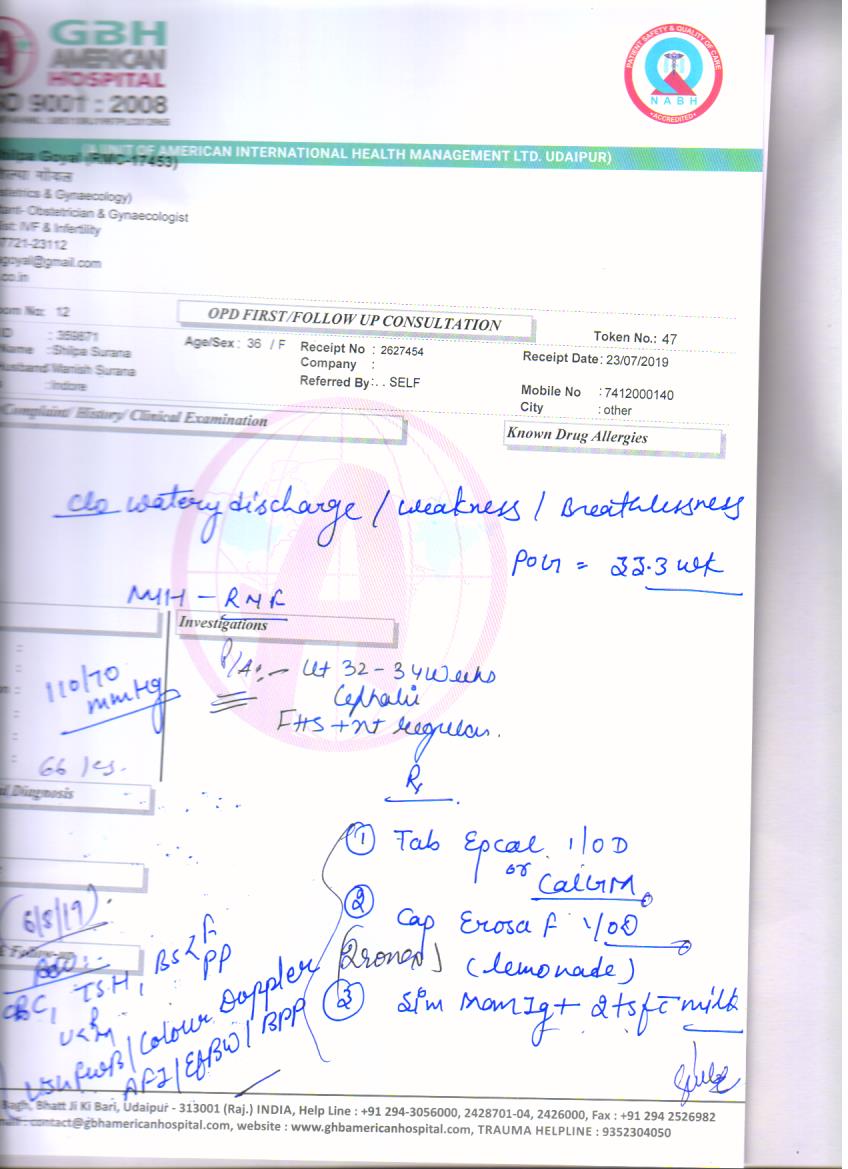 GBH
AMERICAN
HOSPITAL
9001 : 2008
PATIENT SAFETY & QUALITY OF CARE
NABH
• ACCREDITED •
A UNIT OF AMERICAN INTERNATIONAL HEALTH MANAGEMENT LTD. UDAIPUR)
Goyal (RMC-17453)
& Gynaecology)
Obstetrician & Gynaecologist
IVF & Infertility
7721-23112
goyal@gmail.com
.co.in
No: 12
OPD FIRST/FOLLOW UP CONSULTATION
Token No.: 47
ID : 359871
Age/Sex : 36 / F
Receipt No : 2627454
Receipt Date: 23/07/2019
Name : Shilpa Surana
Company :
Husband Manish Surana
Referred By: . . SELF
Mobile No : 7412000140
: Indore
City : other
Complaint/ History/ Clinical Examination
Known Drug Allergies
c/o watery discharge / weakness / Breathlessness
POG = 33.3 wk
M/H - RMF
Investigations
P/A:- Ut 32-34 weeks
Cephalic
FHS +nt regular.
110/70
mmHg
66 kg.
Diagnosis
Rx
① Tab Epcal 1/OD
or
② Cap Erosa F 1/OD
(lemonade)
③ Sim Mom 2tsf c milk
6/8/19
CBC, TSH, BSL F
PP
Colour Doppler
AFI / EFBW / BPP
Bagh, Bhatt Ji Ki Bari, Udaipur - 313001 (Raj.) INDIA, Help Line : +91 294-3056000, 2428701-04, 2426000, Fax : +91 294 2526982
: contact@gbhamericanhospital.com, website : www.ghbamericanhospital.com, TRAUMA HELPLINE : 9352304050